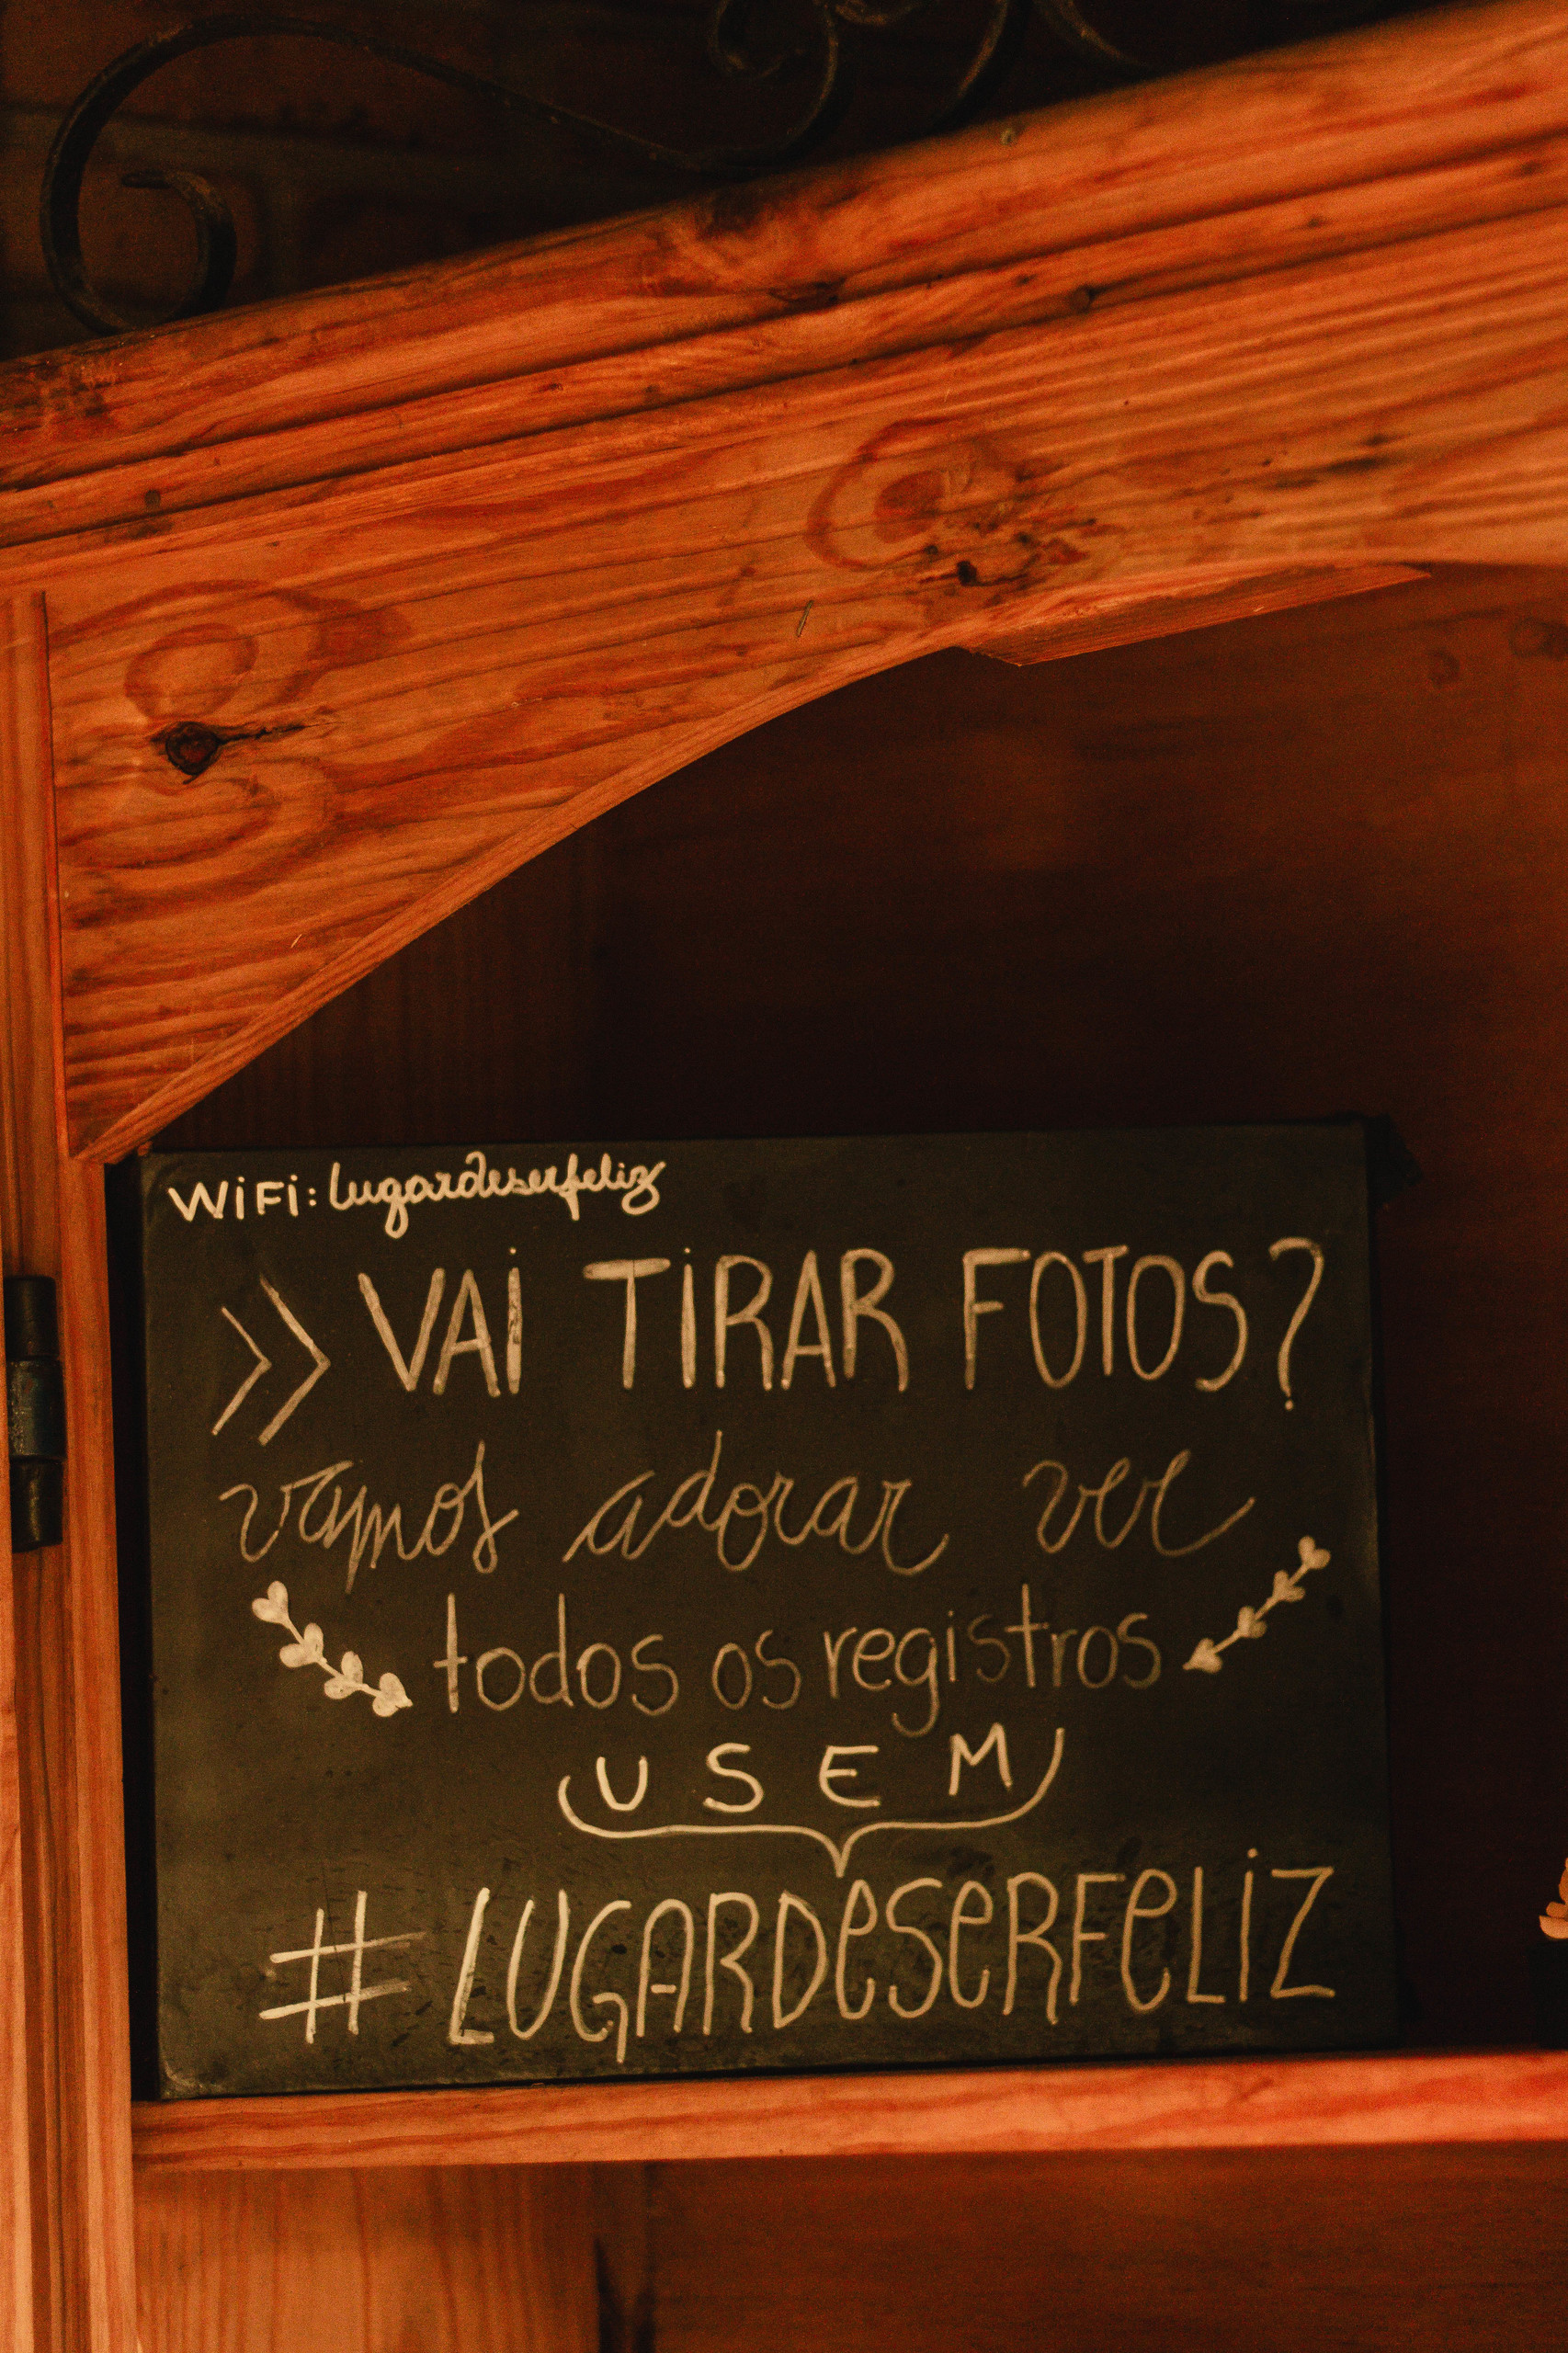 WiFi: lugardeserfeliz
>> VAi TiRAR FOTOS?
vamos adorar ver
todos os registros
USEM
#LUGARDeSeRFeLiZ